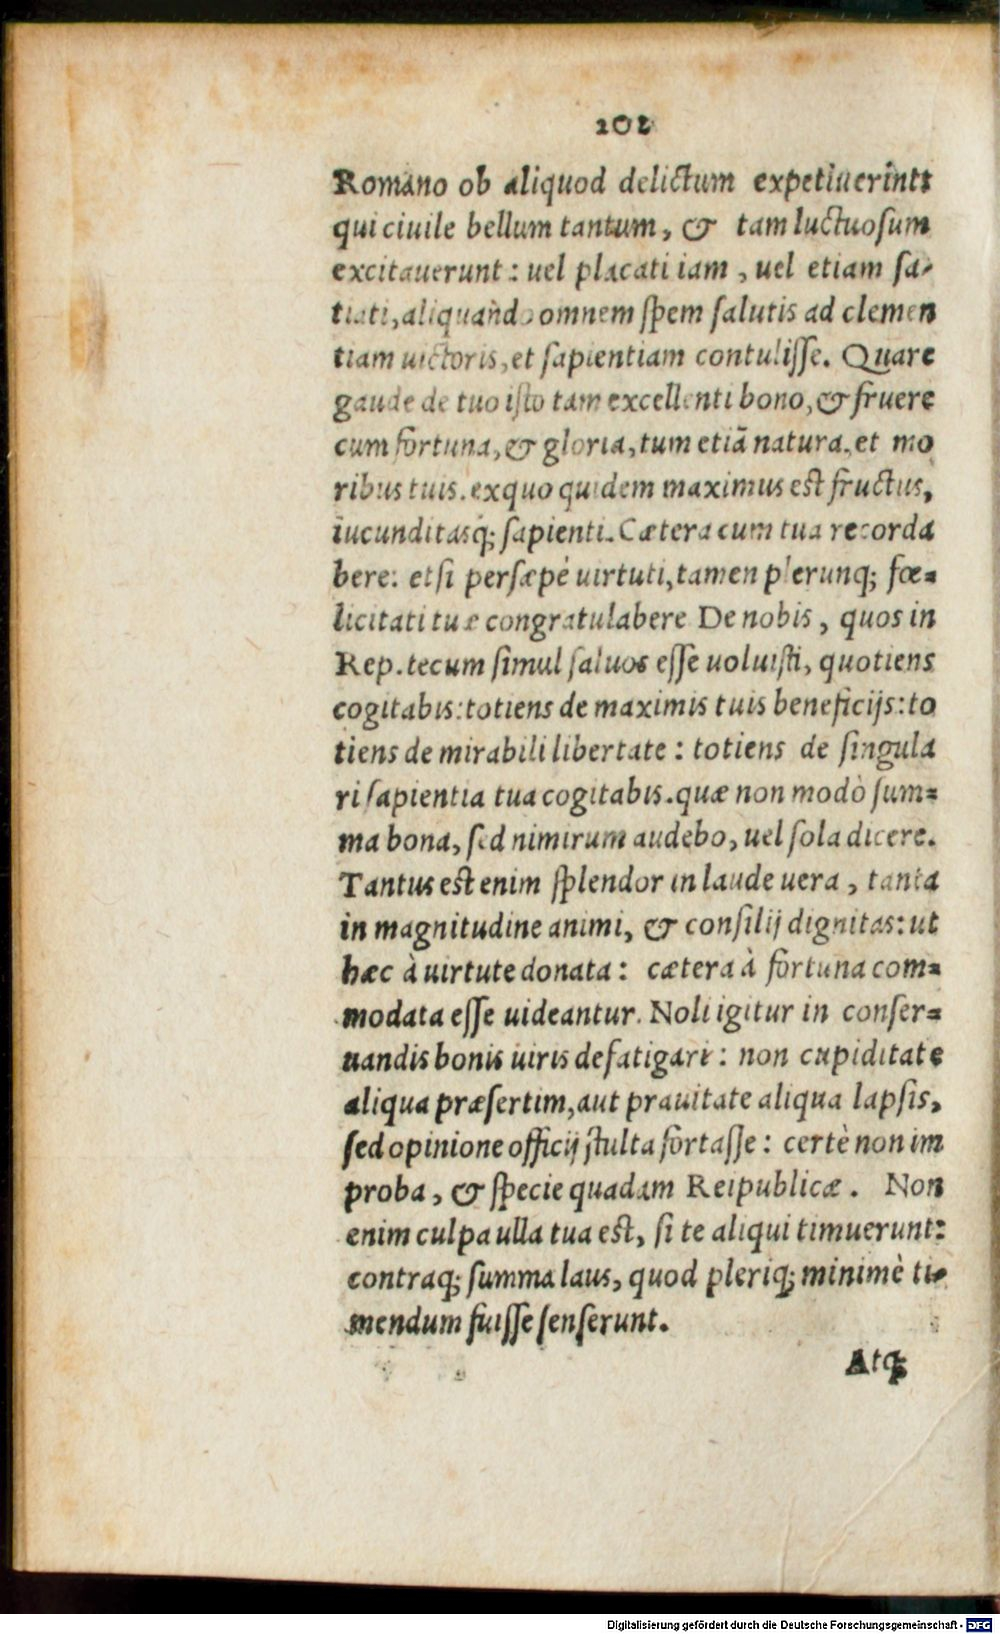 202
Romano ob aliquod delictum expetiuerint:
qui ciuile bellum tantum, & tam luctuoſum
excitauerunt: uel placati iam, uel etiam ſa-
tiati, aliquando omnem ſpem ſalutis ad clemen
tiam uictoris, et ſapientiam contuliſſe. Quare
gaude de tuo iſto tam excellenti bono, & fruere
cum fortuna, & gloria, tum etiã natura, et mo
ribus tuis. exquo quidem maximus eſt fructus,
iucunditasq; ſapienti. Cætera cum tua recorda
bere: etſi perſæpè uirtuti, tamen plerunq; fœ=
licitati tuæ congratulabere De nobis, quos in
Rep. tecum ſimul ſaluos eſſe uoluiſti, quotiens
cogitabis: totiens de maximis tuis beneficijs: to
tiens de mirabili libertate: totiens de ſingula
ri ſapientia tua cogitabis. quæ non modò ſum=
ma bona, ſed nimirum audebo, uel ſola dicere.
Tantus eſt enim ſplendor in laude uera, tanta
in magnitudine animi, & conſilij dignitas: ut
hæc à uirtute donata: cætera à fortuna com=
modata eſſe uideantur. Noli igitur in conſer=
uandis bonis uiris defatigari: non cupiditate
aliqua præſertim, aut prauitate aliqua lapſis,
ſed opinione officij ſtulta fortaſſe: certè non im
proba, & ſpecie quadam Reipublicæ. Non
enim culpa ulla tua eſt, ſi te aliqui timuerunt:
contraq; ſumma laus, quod pleriq; minimè ti-
mendum fuiſſe ſenſerunt.
Atq;
Digitalisierung gefördert durch die Deutsche Forschungsgemeinschaft - DFG